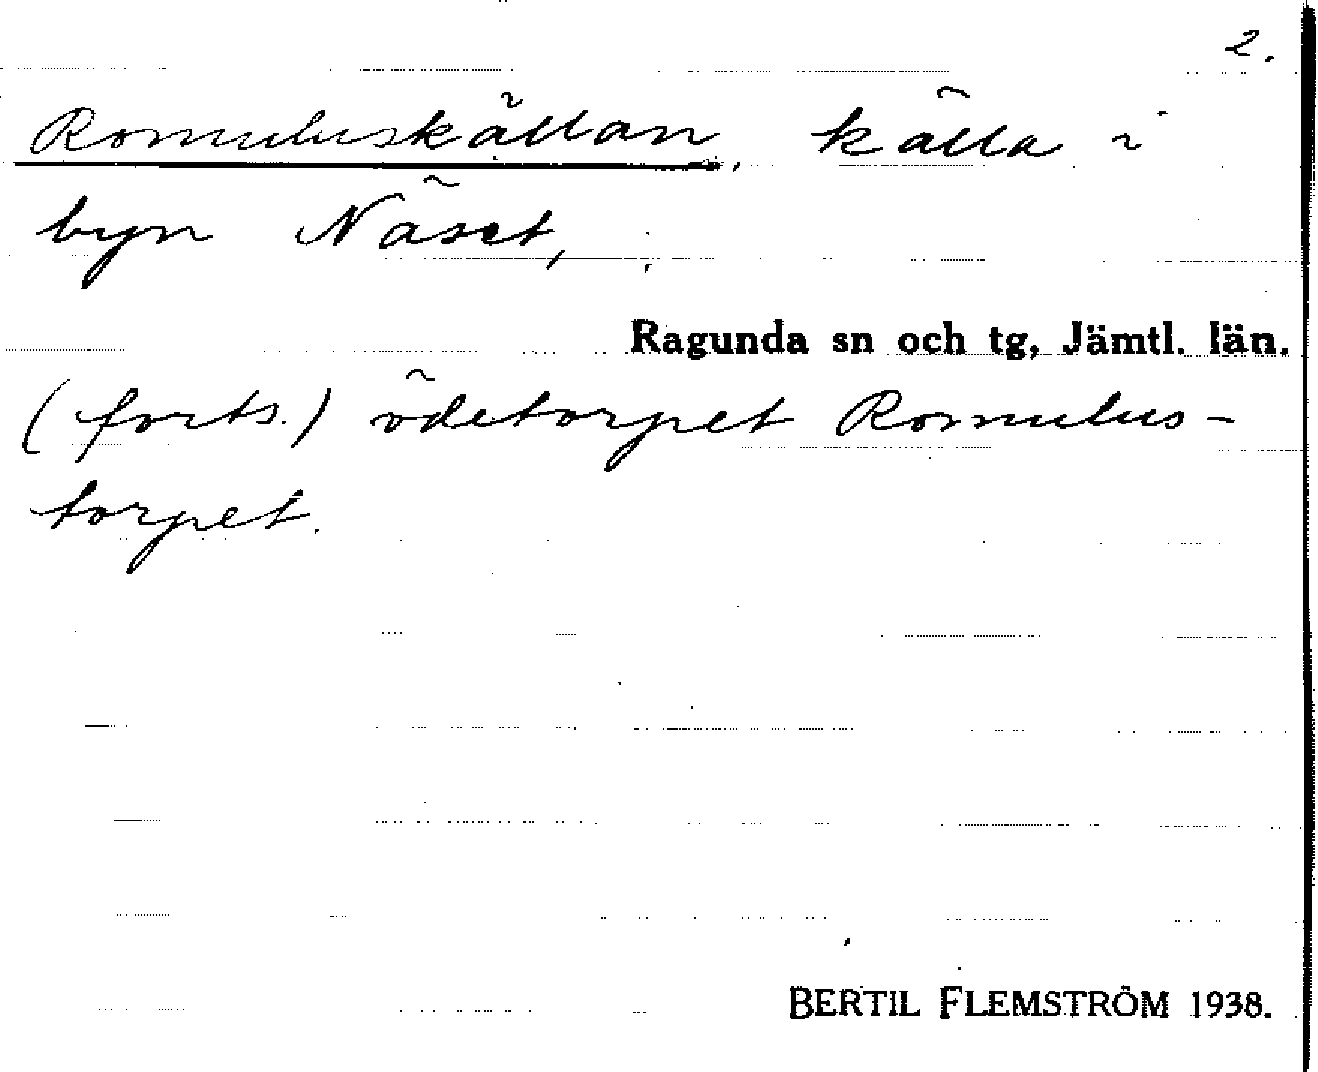 2.
Romuluskällan, källa i
byn Näset,
Ragunda sn och tg, Jämtl. län.
(forts.) ödetorpet Romulus-
torpet.
BERTIL FLEMSTRÖM 1938.